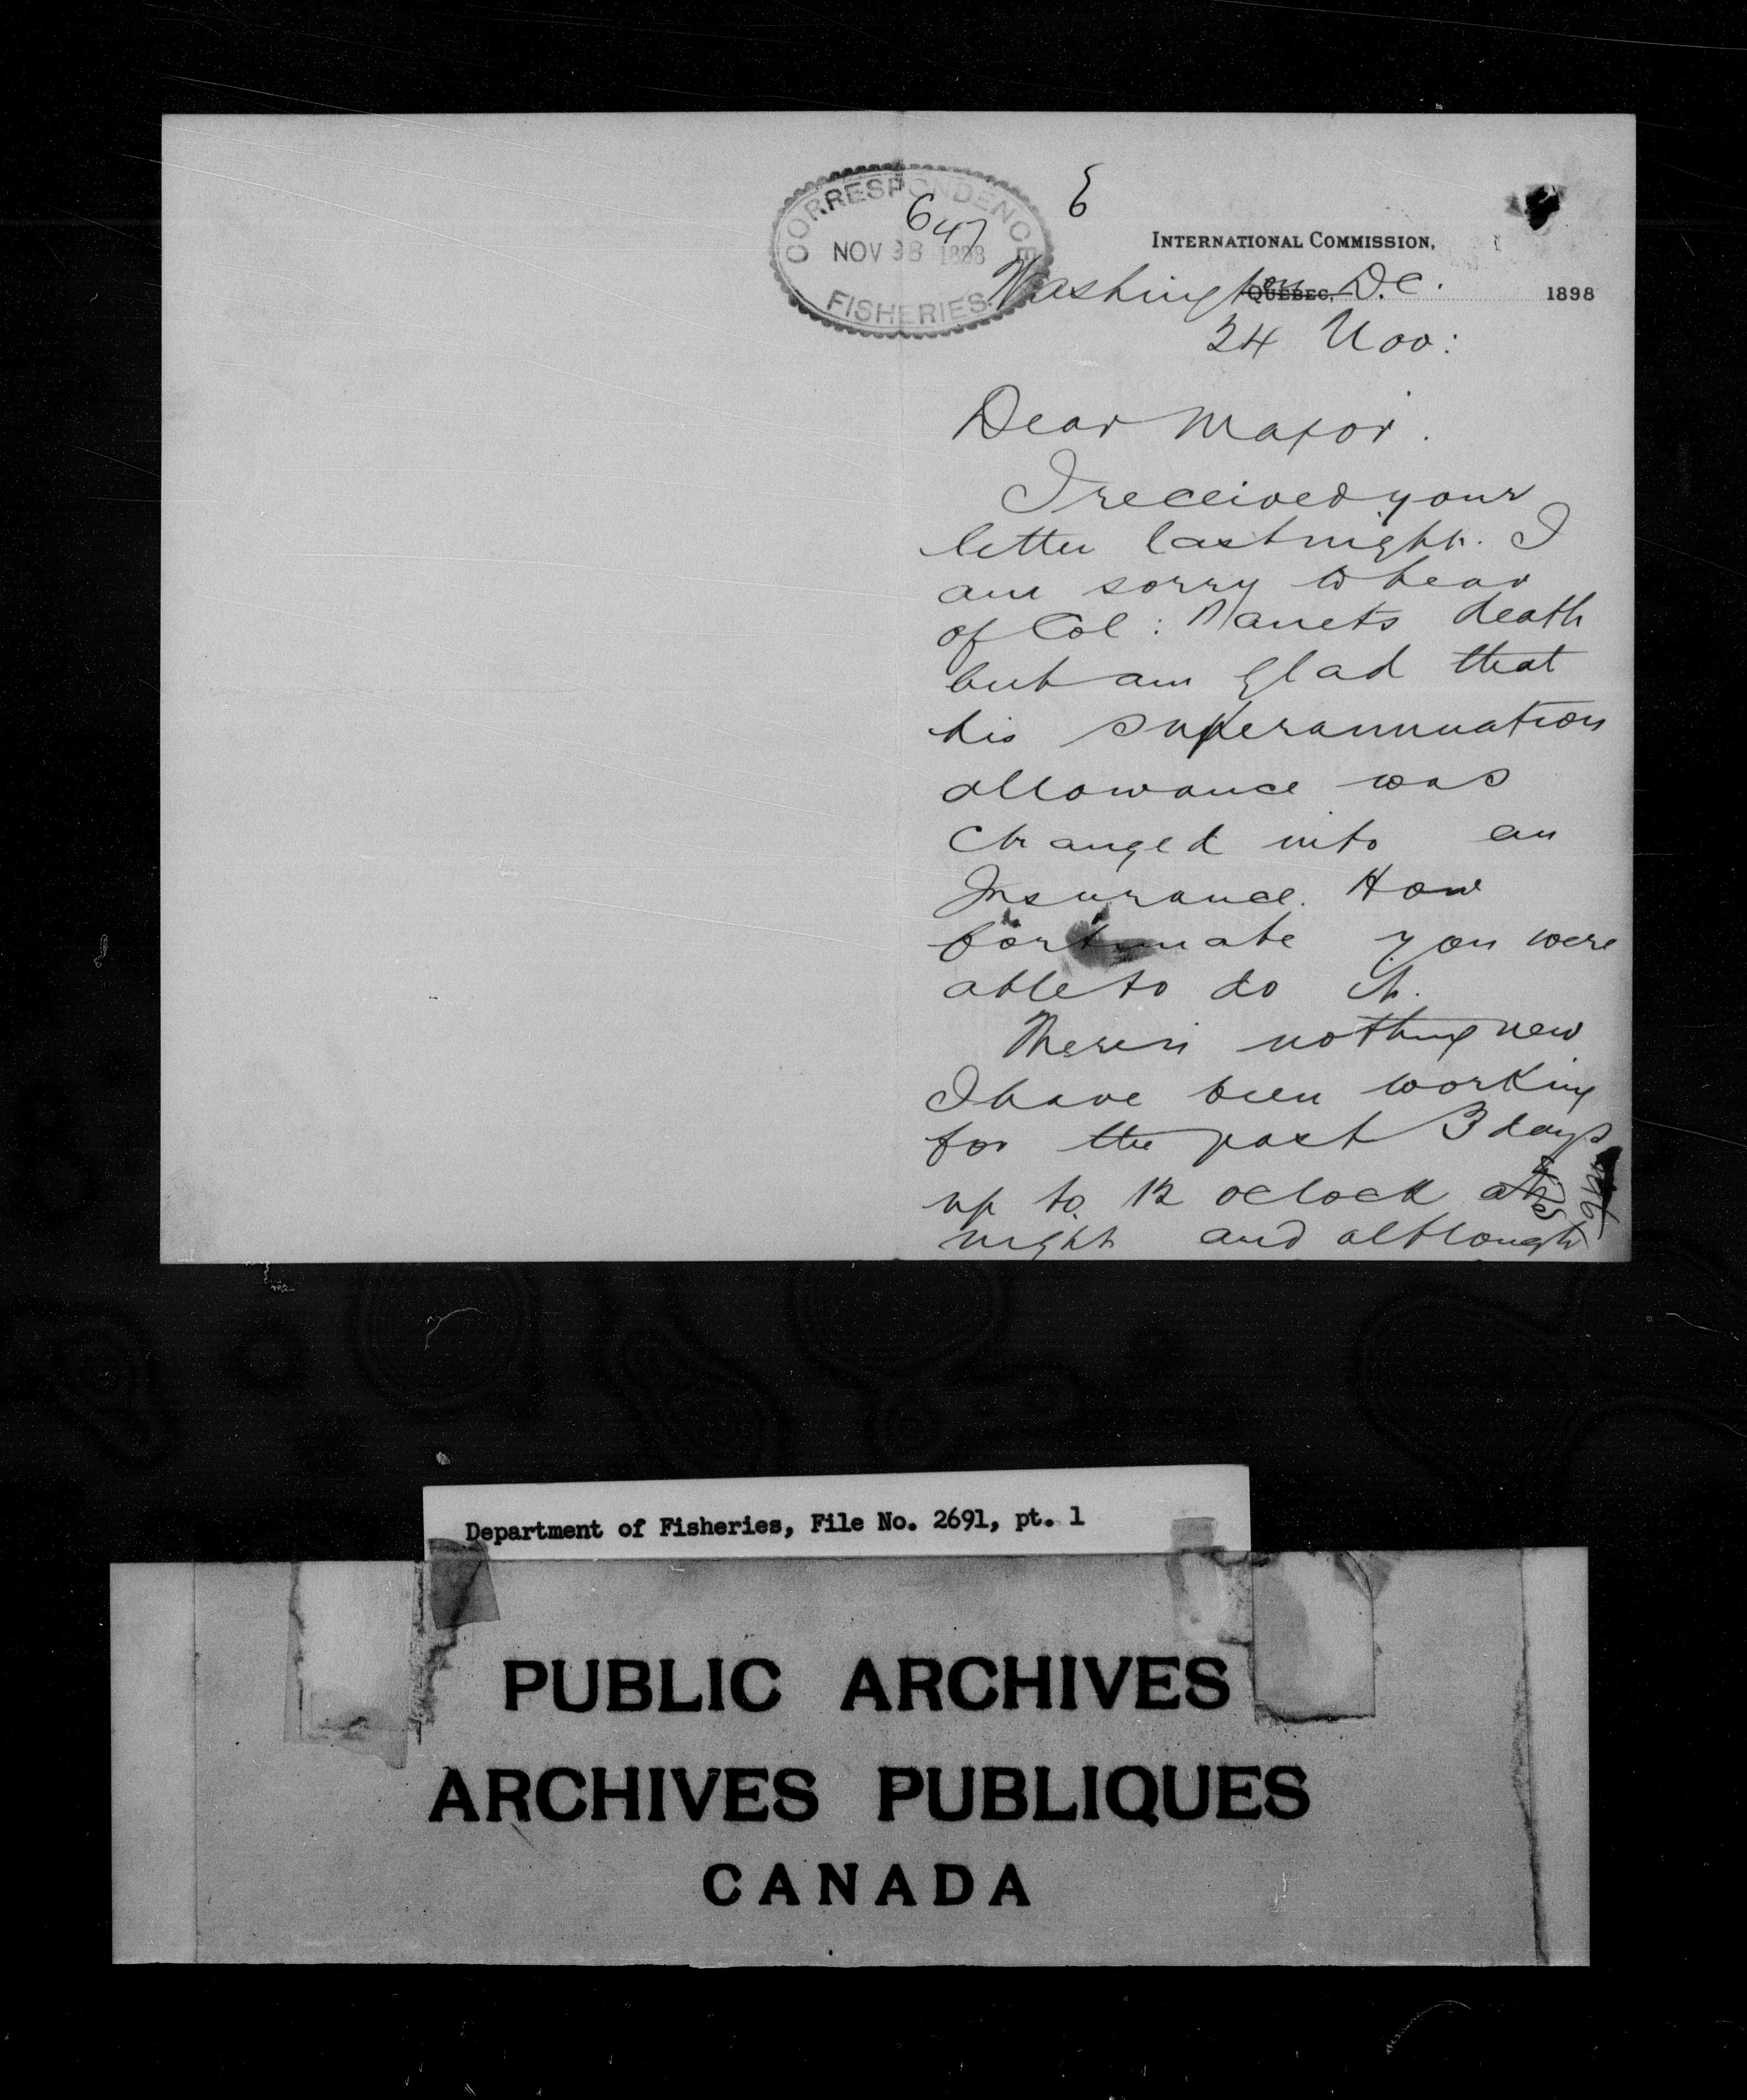 CORRESPONDENCE
647
NOV 28 1898
FISHERIES
6
INTERNATIONAL COMMISSION,
Washington D.C.
QUÉBEC, 1898
24 Nov:
Dear Major.
I received your
letter last night. I
am sorry to hear
of Col: Panets death
but am glad that
his superannuation
allowance was
changed into an
Insurance. How
fortunate you were
able to do it.
There is nothing new
I have been working
for the past 3 days
up to 12 oclock at
night and although
Department of Fisheries, File No. 2691, pt. 1
PUBLIC ARCHIVES
ARCHIVES PUBLIQUES
CANADA